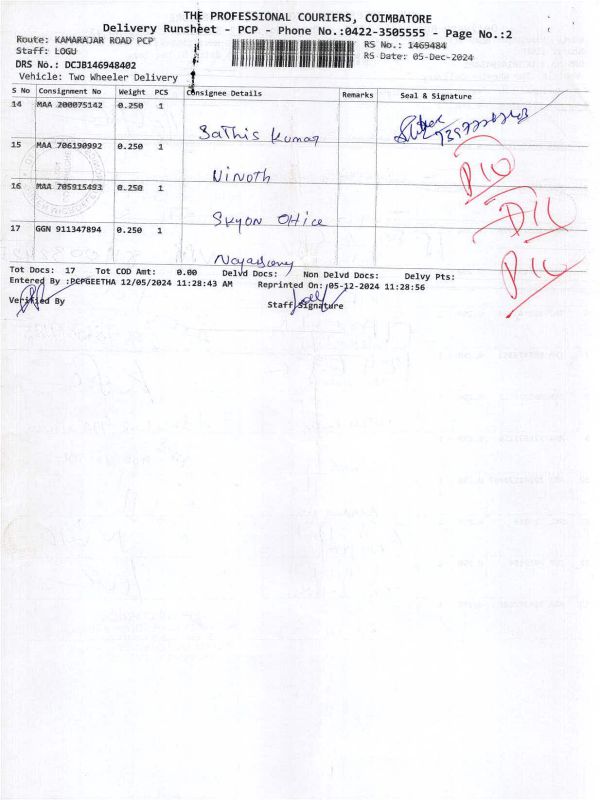 THE PROFESSIONAL COURIERS, COIMBATORE
Delivery Runsheet - PCP - Phone No.:0422-3505555 - Page No.:2
Route: KAMARAJAR ROAD PCP RS No.: 1469484
Staff: LOGU RS Date: 05-Dec-2024
DRS No.: DCJB146948402
Vehicle: Two Wheeler Delivery
S No Consignment No Weight PCS Consignee Details Remarks Seal & Signature
14 MAA 200075142 0.250 1
Sathis Kumar
15 MAA 706190992 0.250 1
Vinoth
16 MAA 705915493 0.250 1
Skyon Office
17 GGN 911347894 0.250 1
Tot Docs: 17 Tot COD Amt: 0.00 Delvd Docs: Non Delvd Docs: Delvy Pts:
Entered By :PCPGEETHA 12/05/2024 11:28:43 AM Reprinted On: 05-12-2024 11:28:56
Verified By Staff Signature